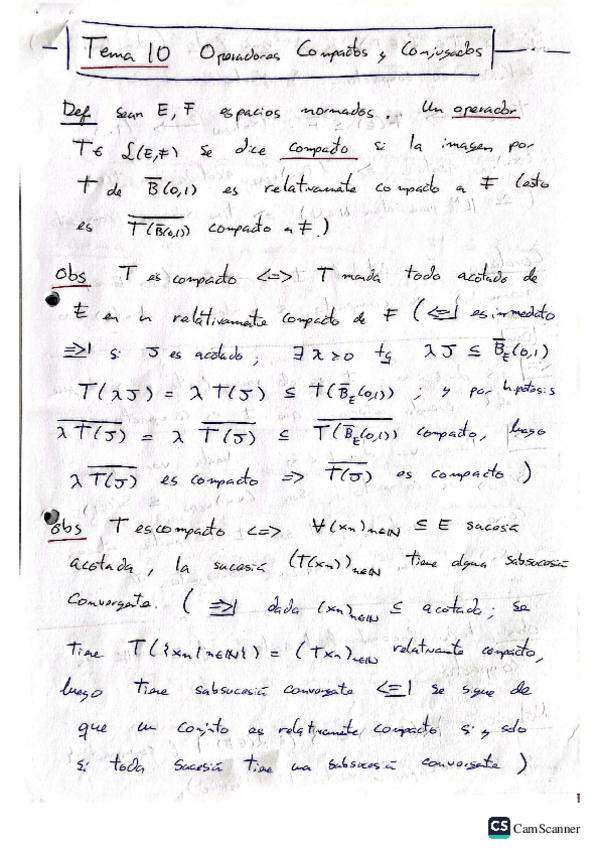 Tema 10 Operadores Compactos y Conjugados
Def sean E, F espacios normados. Un operador
T ∈ L(E,F) se dice compacto si la imagen por
T de B̅(0,1) es relativamente compacto en F (esto
es \overline{T(B̅(0,1))} compacto en F.)
Obs T es compacto <=> T manda todo acotado de
E en un relativamente compacto de F (<=| es inmediato
=>| si J es acotado; ∃ λ>0 tq λJ ⊆ B̅_E(0,1)
T(λJ) = λT(J) ⊆ T(B̅_E(0,1)); y por hipótesis
\overline{λT(J)} = λ\overline{T(J)} ⊆ \overline{T(B̅_E(0,1))} compacto, luego
λ\overline{T(J)} es compacto => \overline{T(J)} es compacto)
Obs T es compacto <=> ∀(xn)n∈ℕ ⊆ E sucesió
acotada, la sucesió (T(xn))n∈ℕ tiene alguna subsucesió
Convergente. (=>| dada (xn)n∈ℕ ⊆ acotado; se
tiene T({xn|n∈ℕ}) = (Txn)n∈ℕ relativamente compacto,
luego tiene subsucesió convergente <=| se sigue de
que un conjto es relativamente compacto si y solo
si toda sucesió tiene una subsucesió convergente)
1
CS CamScanner